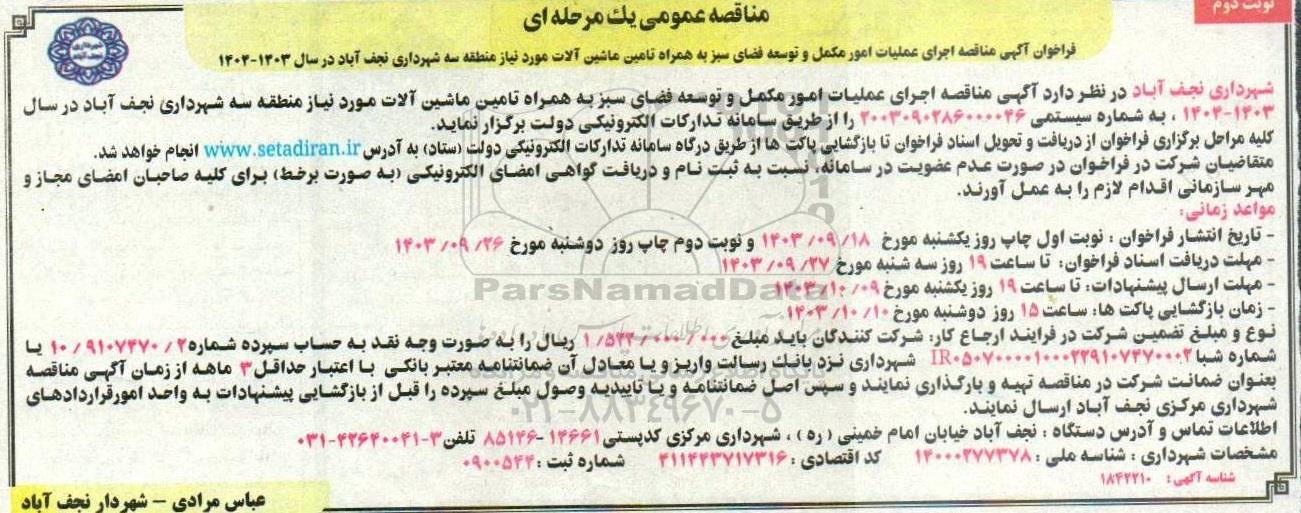 نوبت دوم
مناقصه عمومی یك مرحله ای
فراخوان آگهی مناقصه اجرای عملیات امور مکمل و توسعه فضای سبز به همراه تامین ماشین آلات مورد نیاز منطقه سه شهرداری نجف آباد در سال ۱۴۰۳-۱۴۰۴
شهرداری نجف آباد در نظر دارد آگهی مناقصه اجرای عملیات امور مکمل و توسعه فضای سبز به همراه تامین ماشین آلات مورد نیاز منطقه سه شهرداری نجف آباد در سال
۱۴۰۳-۱۴۰۴ ، به شماره سیستمی ۲۰۰۳۰۹۰۲۸۶۰۰۰۰۴۶ را از طریق سامانه تدارکات الکترونیکی دولت برگزار نماید.
کلیه مراحل برگزاری فراخوان از دریافت و تحویل اسناد فراخوان تا بازگشایی پاکت ها از طریق درگاه سامانه تدارکات الکترونیکی دولت (ستاد) به آدرس www.setadiran.ir انجام خواهد شد.
متقاضیان شرکت در فراخوان در صورت عدم عضویت در سامانه، نسبت به ثبت نام و دریافت گواهی امضای الکترونیکی (به صورت برخط) برای کلیه صاحبان امضای مجاز و
مهر سازمانی اقدام لازم را به عمل آورند.
مواعد زمانی:
- تاریخ انتشار فراخوان : نوبت اول چاپ روز یکشنبه مورخ ۱۴۰۳/۰۹/۱۸ و نوبت دوم چاپ روز دوشنبه مورخ ۱۴۰۳/۰۹/۲۶
- مهلت دریافت اسناد فراخوان: تا ساعت ۱۹ روز سه شنبه مورخ ۱۴۰۳/۰۹/۲۷
- مهلت ارسال پیشنهادات: تا ساعت ۱۹ روز یکشنبه مورخ ۱۴۰۳/۱۰/۰۹
- زمان بازگشایی پاکت ها: ساعت ۱۵ روز دوشنبه مورخ ۱۴۰۳/۱۰/۱۰
نوع و مبلغ تضمین شرکت در فرایند ارجاع کار: شرکت کنندگان باید مبلغ ۱/۵۲۲/۰۰۰/۰۰۰ ریال را به صورت وجه نقد به حساب سپرده شماره ۱۰/۹۱۰۷۴۷۰/۲ با
شماره شبا IR۰۵۰۷۰۰۰۰۱۰۰۰۲۲۹۱۰۷۴۷۰۰۰۲ شهرداری نزد بانك رسالت واریز و یا معادل آن ضمانتنامه معتبر بانکی با اعتبار حداقل ۳ ماهه از زمان آگهی مناقصه
بعنوان ضمانت شرکت در مناقصه تهیه و بارگذاری نمایند و سپس اصل ضمانتنامه و یا تاییدیه وصول مبلغ سپرده را قبل از بازگشایی پیشنهادات به واحد امورقراردادهای
شهرداری مرکزی نجف آباد ارسال نمایند.
اطلاعات تماس و آدرس دستگاه : نجف آباد خیابان امام خمینی (ره) ، شهرداری مرکزی کدپستی ۱۴۶۶۱-۸۵۱۴۶ تلفن ۳-۴۲۶۴۰۰۴۱-۰۳۱
مشخصات شهرداری : شناسه ملی : ۱۴۰۰۰۲۷۷۳۷۸ کد اقتصادی : ۴۱۱۴۴۳۷۱۷۳۱۶ شماره ثبت : ۰۹۰۰۵۴۴
شناسه آگهی: ۱۸۴۲۲۱۰
عباس مرادی – شهردار نجف آباد
ParsNamadData
۰۲۱-۸۸۳۴۹۶۷۰-۵